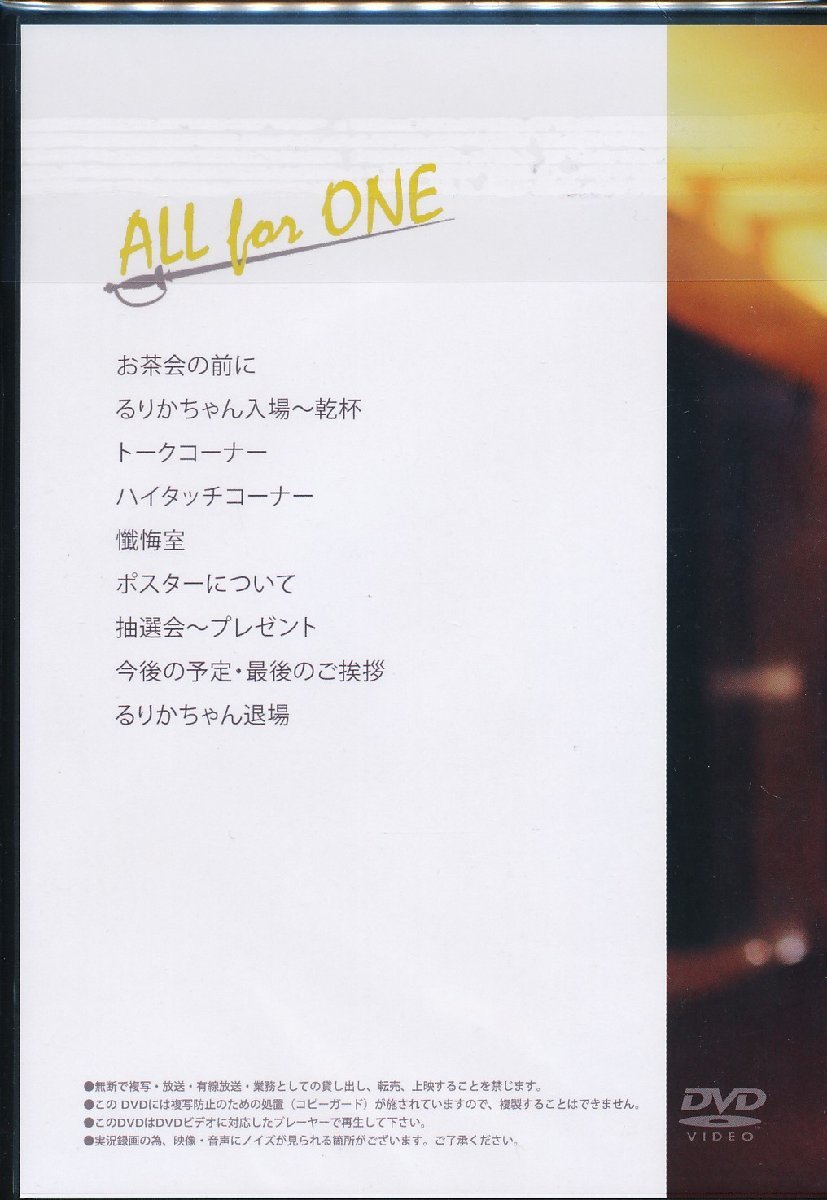 ALL for ONE
お茶会の前に
るりかちゃん入場～乾杯
トークコーナー
ハイタッチコーナー
懺悔室
ポスターについて
抽選会～プレゼント
今後の予定・最後のご挨拶
るりかちゃん退場
●無断で複写・放送・有線放送・業務としての貸し出し、転売、上映することを禁じます。
●この DVDには複写防止のための処置（コピーガード）が施されていますので、複製することはできません。
●このDVDはDVDビデオに対応したプレーヤーで再生して下さい。
●実況録画の為、映像・音声にノイズが見られる箇所がございます。ご了承ください。
DVD
VIDEO